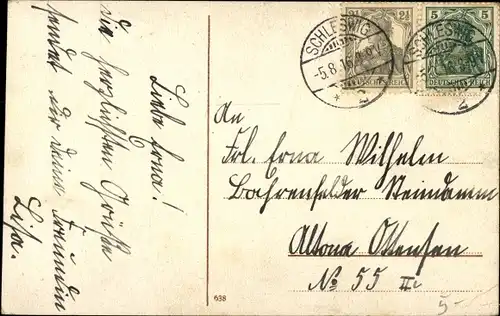 SCHLESWIG
-5.8.16
* 2
2½ 2½
DEUTSCHES REICH
SCHLESWIG
2
5 5
DEUTSCHES REICH
Liebe Erna!
Die herzlichsten Grüße
sendet dir deine Freundin
Lisa.
An
Frl. Erna Wilhelm
Bahrenfelder Steindamm
Altona Ottensen
No 55 II
638
5-